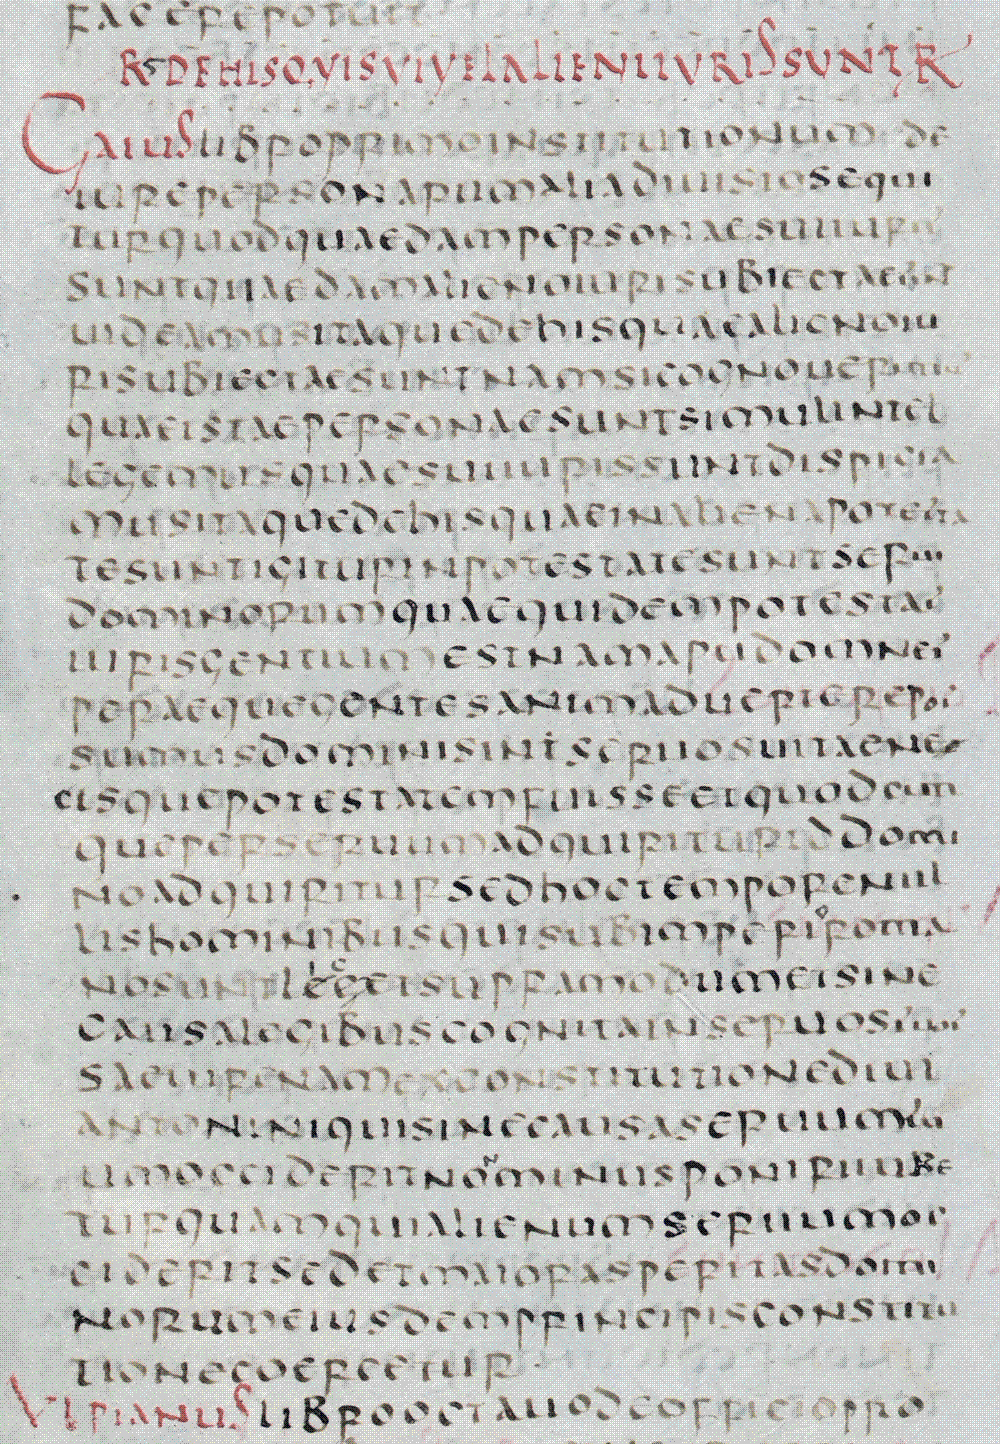 FACEREPOTEST
R DEHISQVISVIVELALIENIIVRISSVNT R
GAIUSLIBROPRIMOINSTITUTIONUM DE
IUREPERSONARUMALIADIUISIOSEQUI
TURQUODQUAEDAMPERSONAESUIIURIS
SUNTQUAEDAMALIENOIURISUBIECTAESUNT
UIDEAMUSITAQUEDEHISQUAEALIENOIU
RISUBIECTAESUNTNAMSICOGNOUERIMUS
QUAEISTAEPERSONAESUNTSIMULINTEL
LEGEMUSQUAESUIIURISSUNTDISPICIA
MUSITAQUEDEHISQUAEINALIENAPOTESTA
TESUNTIGITURINPOTESTATESUNTSERUI
DOMINORUMQUAEQUIDEMPOTESTAS
IURISGENTIUMESTNAMAPUDOMNES
PERAEQUEGENTESANIMADUERTEREPOS
SUMUSDOMINISINSERUOSUITAENE
CISQUEPOTESTATEMFUISSEETQUODCUM
QUEPERSERUUMADQUIRITURIDDOMI
NOADQUIRITURSEDHOCTEMPORENUL
LISHOMINIBUSQUISUBIMPERIOROMA
NOSUNTLICETSUPRAMODUMETSINE
CAUSALEGIBUSCOGNITAINSERUOSSUOS
SAEUIRENAMEXCONSTITUTIONEDIUI
ANTONINIQUISINECAUSASERUUMSU
UMOCCIDERITNONMINUSPUNIRIIUBE
TURQUAMQUIALIENUMSERUUMOC
CIDERITSEDETMAIORASPERITASDOMI
NORUMEIUSDEMPRINCIPISCONSTITU
TIONECOERCETUR
VLPIANUSLIBROOCTAUODEOFFICIOPRO